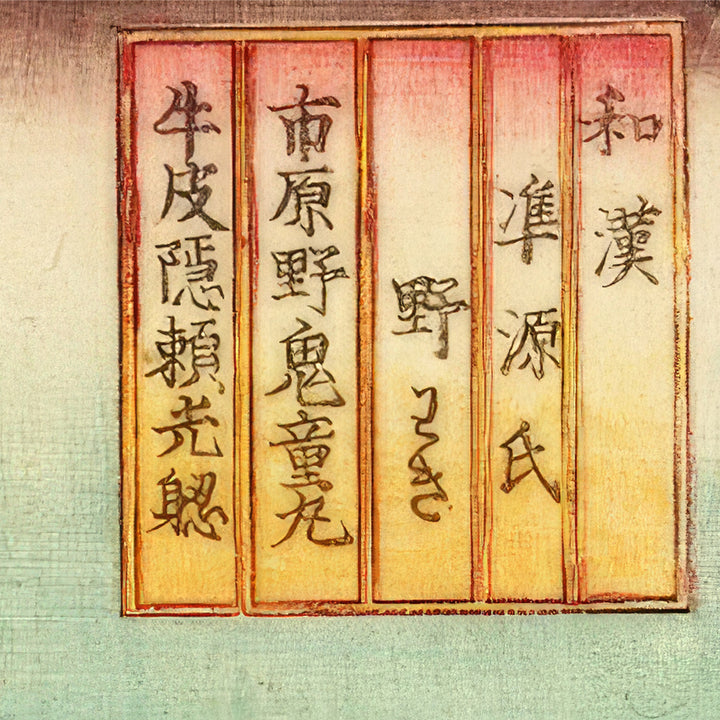 和漢
準源氏
野わき
市原野鬼童丸
牛皮隠頼光覗